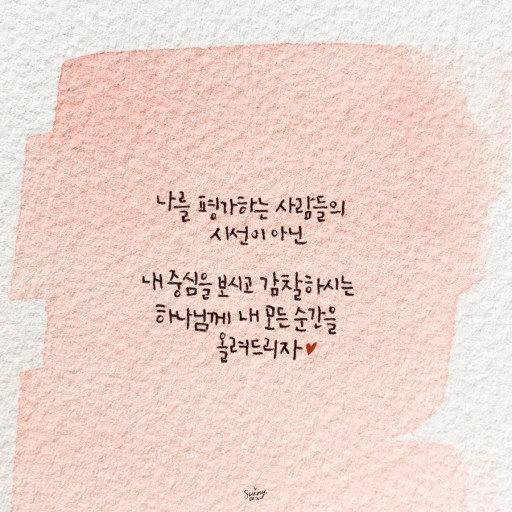 나를 평가하는 사람들의
시선이 아닌
내 중심을 보시고 감찰하시는
하나님께 내 모든 순간을
올려드리자